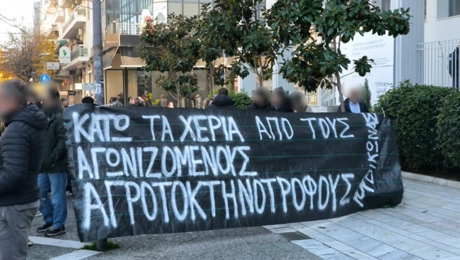 ΚΑΤΩ ΤΑ ΧΕΡΙΑ ΑΠΟ ΤΟΥΣ
ΑΓΩΝΙΖΟΜΕΝΟΥΣ
ΑΓΡΟΤΟΚΤΗΝΟΤΡΟΦΟΥΣ